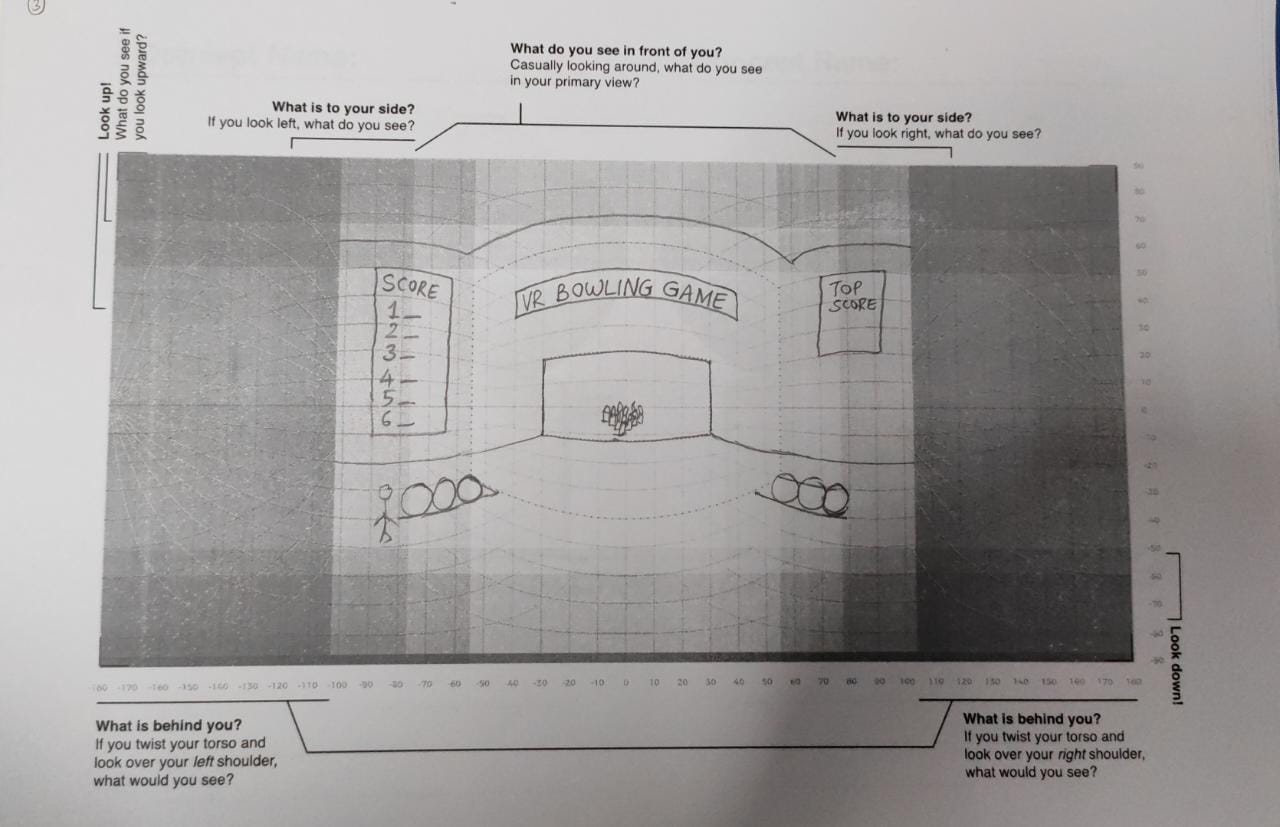 3
Look up!
What do you see if
you look upward?
What is to your side?
If you look left, what do you see?
What do you see in front of you?
Casually looking around, what do you see
in your primary view?
What is to your side?
If you look right, what do you see?
SCORE
1_
2_
3_
4_
5_
6_
VR BOWLING GAME
TOP
SCORE
90
80
70
60
50
40
30
20
10
0
-10
-20
-30
-40
-50
-60
-70
-80
-90
Look down!
-180 -170 -160 -150 -140 -130 -120 -110 -100 -90 -80 -70 -60 -50 -40 -30 -20 -10 0 10 20 30 40 50 60 70 80 90 100 110 120 130 140 150 160 170 180
What is behind you?
If you twist your torso and
look over your left shoulder,
what would you see?
What is behind you?
If you twist your torso and
look over your right shoulder,
what would you see?